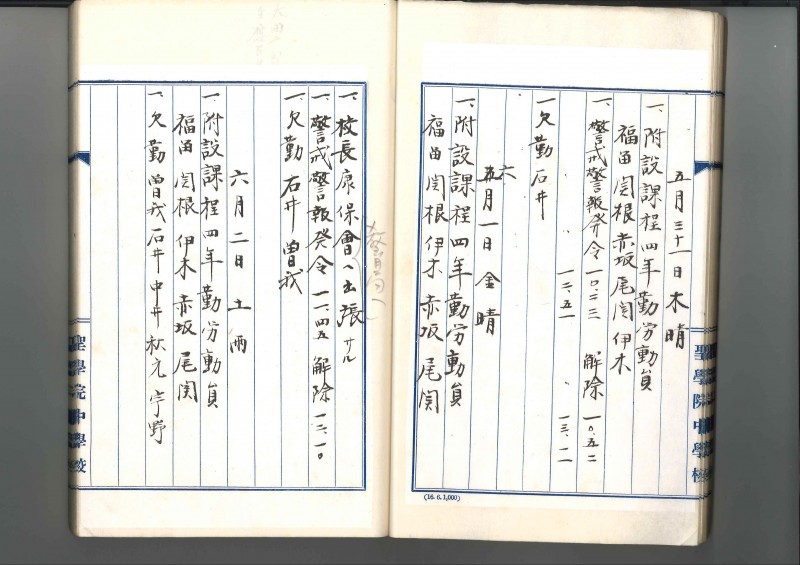 五月三十一日 木 晴
一、附設課程四年勤労動員
福留 関根 赤坂 尾関 伊木
一、警戒警報発令 一〇.二三 解除 一〇.五二
〃 一二.五一 〃 一三.一一
一、欠勤 石井
六月一日 金 晴
一、附設課程四年勤労動員
福留 関根 伊木 赤坂 尾関
聖學院中學校
(16. 6. 1,000)
一、校長康保會ヘ出張サル
一、警戒警報発令 一一.四五 解除 一二.一〇
一、欠勤 石井 曽我
六月二日 土 雨
一、附設課程四年勤労動員
福留 関根 伊木 赤坂 尾関
一、欠勤 曽我 石井 中井 秋元 宇野
聖學院中學校